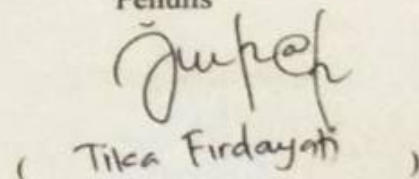 Penulis
( Tika Firdayati )